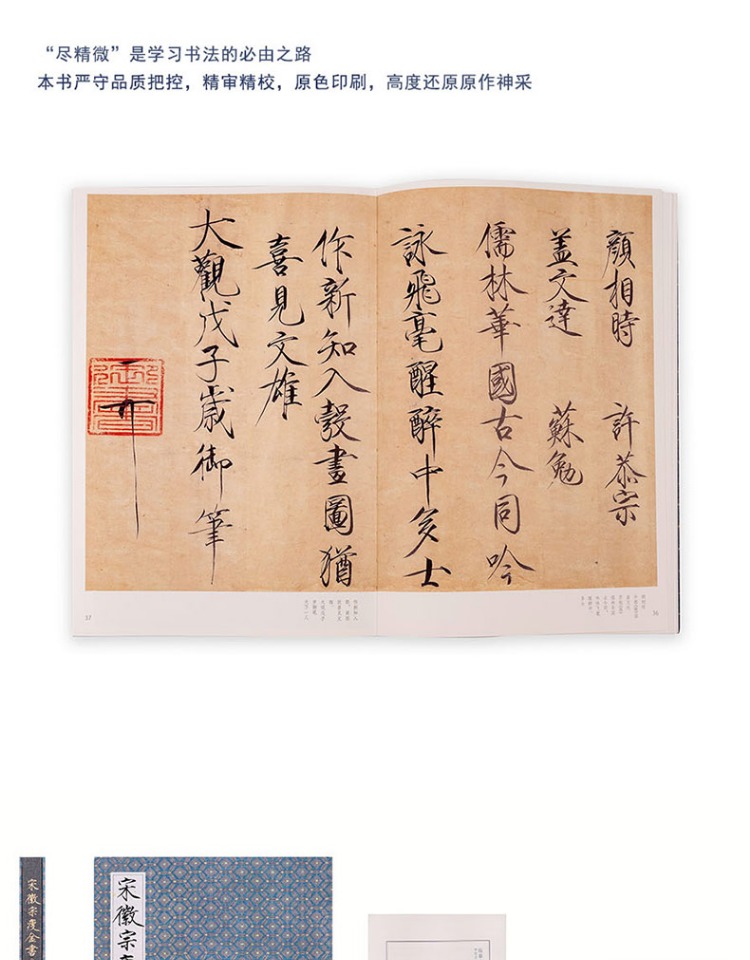 “尽精微”是学习书法的必由之路
本书严守品质把控，精审精校，原色印刷，高度还原原作神采
顏相時 許恭宗
盖文達 蘇勉
儒林華國古今同吟
詠飛毫醒醉中多士
作新知入彀畫圖猶
喜見文雄
大觀戊子歲御筆
36
37
宋徽宗瘦金書
宋徽宗